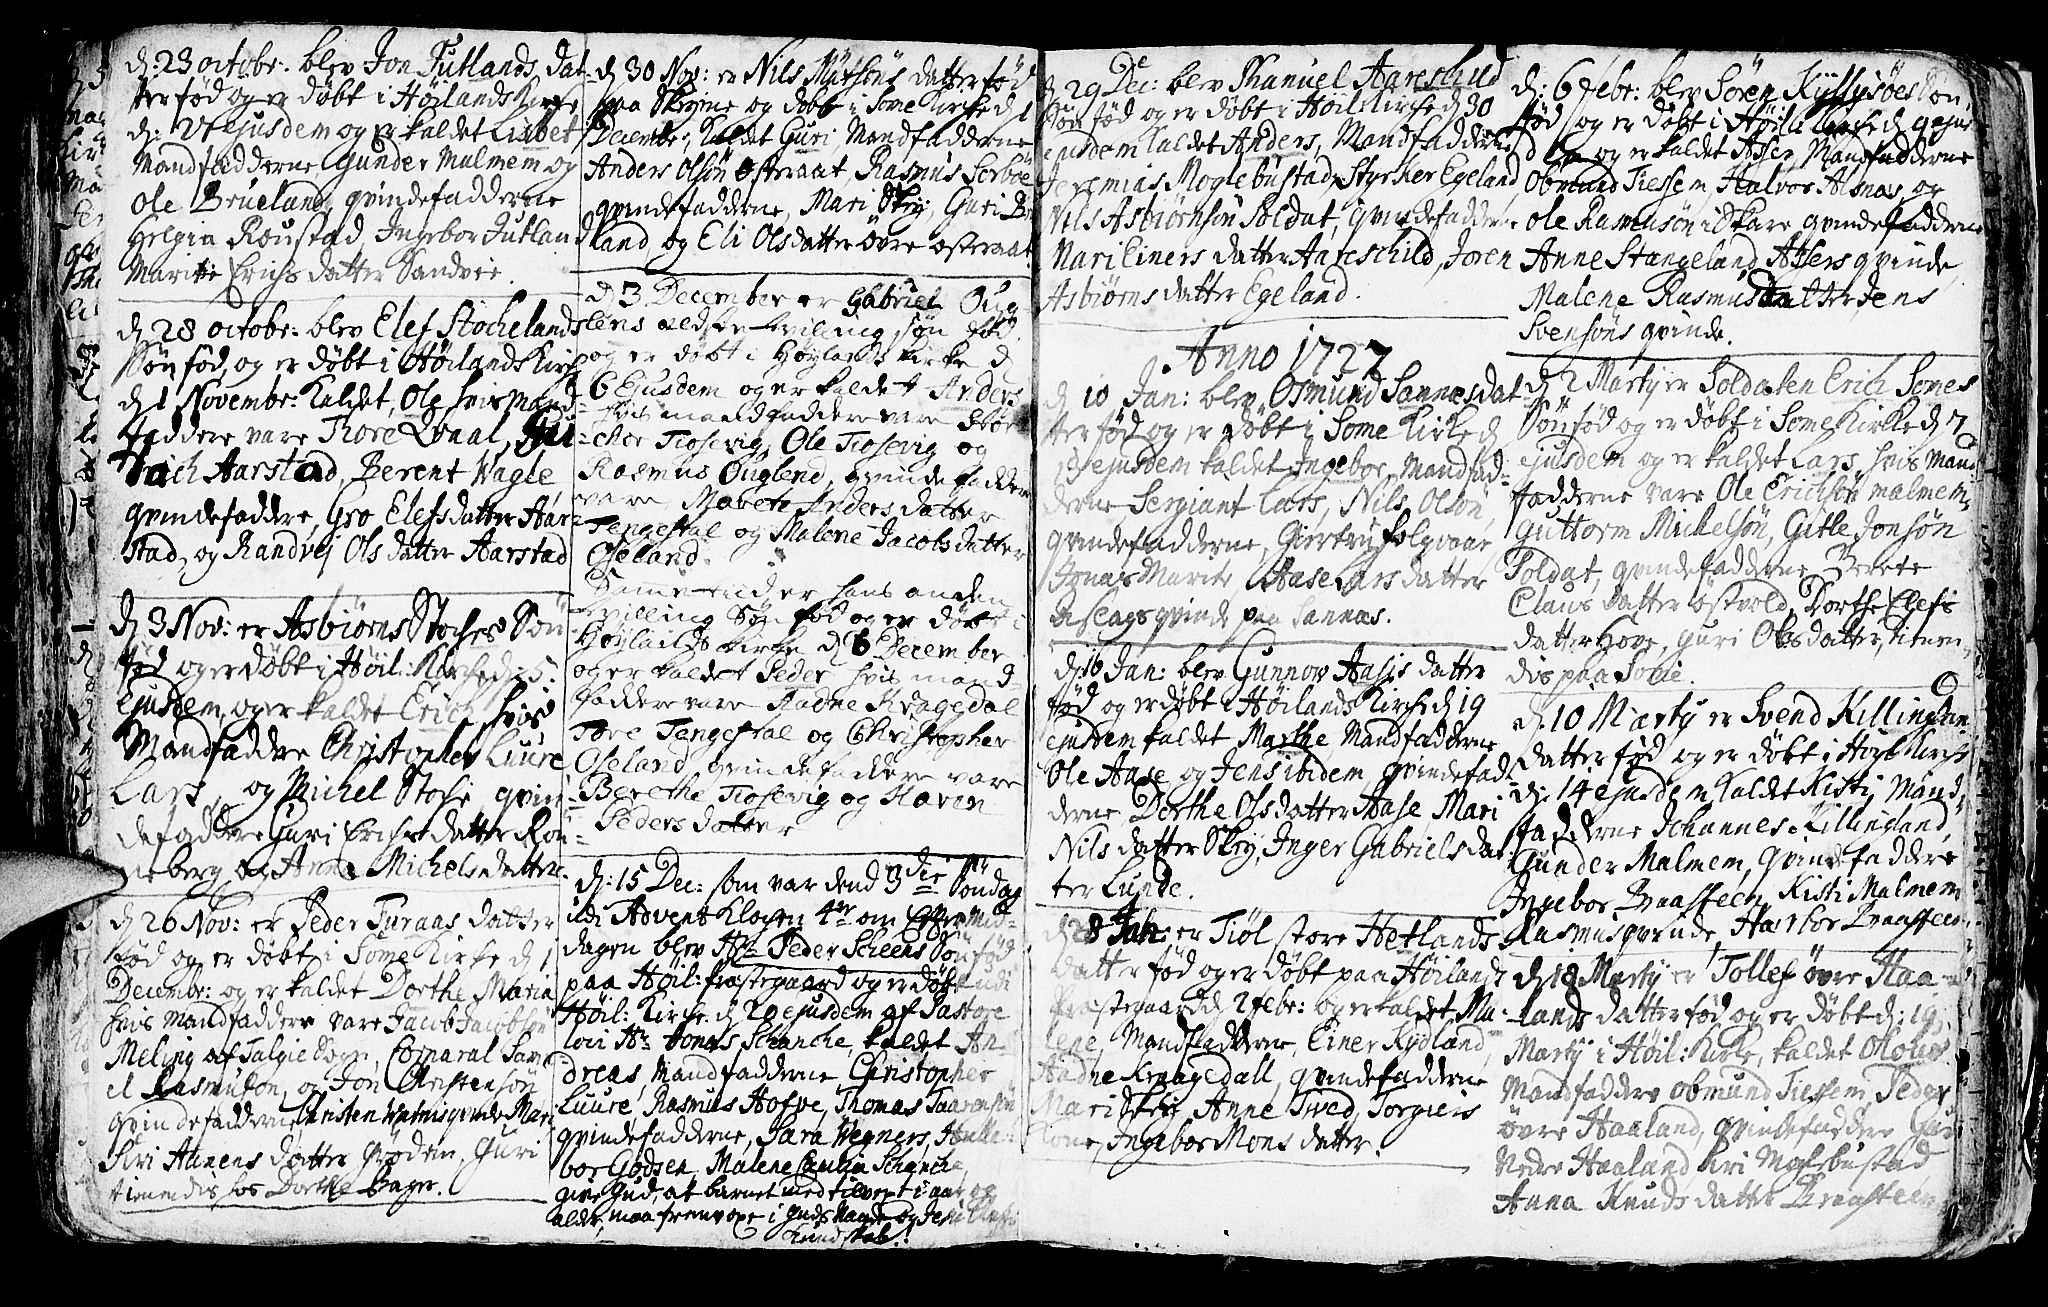 d: 23 octobr. blev Jon Jutlands Dat
ter fød og er døbt i Høilands Kirke
d: 27 ejusdem og er kaldet Lisbet
Mandfadderne, Gunder Malmem og
Ole Brueland, qvindefadderne
Helgia Roustad, Ingebor Jutland
Marite Erichs datter Sandvie.
d 28 octobr: blev Elef Stochelands
Søn fød, og er døbt i Høilands Kirch
d 1 Novembr: Kaldet, Ole hvis Mand-
faddere vare Thore Qvaal,
Aarstad, Berent Vagle
qvindefaddere, Gro Elefsdatter Aar-
stad, og Randvej Olsdatter Aarstad
d 3 Nov: er Asbiørns Stoches Søn
fød og er døbt i Høil: Kirche d: 5
Ejusdem, og er kaldet Erich, hvis
Mandfaddere Christopher Luure
Lars, og Michel Stoche, qvin-
defaddere Guri Erichsdatter Ron-
neberg og Anna Michelsdatter.
d 26 Nov: er Peder Turaas datter
fød og er døbt i Some Kirke d 1
Decembr: og er kaldet Dorthe Maria
hvis Mandfaddere vare Jacob Jacobsen
Meling af Talgie Sogn, Corparal Samu
el Rasmuson, og Jon Christensøn
qvindefadderne Christen qvinde Mari
Siri Hanens datter Grødem, Guri
tienendis hos Dorthe Bager.
d 30 Nov: er Nils Matsøns datter fød
paa Skeyine og døbt i Some Kirche d 1
Decembr: Kaldet Guri, Mandfadderne
Anders Olsøn Osteraat, Rasmus Sorboe
qvindefadderne, Mari Skej, Guri Bru
land, og Eli Olsdatter øvre osteraat.
d 3 December er Gabriel Oug
lens ældste tvilling søn fød
og er døbt i Høylands kirke d
6 Ejusdem og er kaldet Anders
hvis mandfaddere vare Stør
cher Tiosevig, Ole Tiosevig og
Rasmus Ouglend, qvinde faddere
vare Marete Anders datter
Tengesdal og Malene Jacobsdatter
Oseland.
Samme tid er hans anden
tvilling Søn fød og er døbt i
Høylands kirke d 6 December
og er kaldet Peder hvis mand-
faddere vare Aadne Kragedal
Tore Tengesdal og Christopher
Oseland qvindefaddere vare
Berethe Tiosevig og Karen
Peders datter
d: 15 Dec: som var dend 3die Søndag
udi Advent Klochen 4re om Efftermid-
dagen blev Hr. Peder Scheens Søn fød
paa Høil: Præstegaard og er døbt udi
Høil: Kirche d 20 ejusdem af Pastore
loci Hr Jonas Schanche, kaldet An-
dreas, Mandfadderne Christopher
Luure, Rasmus Hofve, Thomas Taaransen
qvindefadderne, Sara Wegners,
bor Godsen, Malene Schanche,
give Gud, at barnet med tilvext i aar og
alder, maa fremvoxe i Guds Naade og Jesu Christi
Kundskab!
d 29 Dec: blev Manuel Aareskild
Søn fød og er døbt i Høil: Kirche d 30
ejusdem kaldet Anders, Mandfadderne
Jeremias Moglebustad, Styrker Egeland
Nils Asbiørnsøn Soldat, qvindefadderne
Mari Einers datter Aareschild, Joren
Asbiørnsdatter Egeland.
Anno 1727
d 10 Jan: blev Osmund Sannæs dat
ter fød og er døbt i Some Kirke d
13 ejusdem kaldet Ingebor, Mandfad-
derne Sergiant Lars, Nils Olsøn,
qvindefadderne, Giertru Folgvaar,
Jonas Marite, Aase Larsdatter
qvinde paa Sannæs.
d: 16 Jan: blev Gunnov Aasis datter
fød og er døbt i Høilands Kirche d 19
ejusdem kaldet Marthe Mandfadderne
Ole Aase og Jens ibidem, qvindefad-
derne Dorthe Olsdatter Aase Mari
Nils datter Skej, Inger Gabriels dat-
ter Lunde.
d 28 Jan: er Tiøl store Hetlands
Datter fød og er døbt paa Høilands
Præstegaard d 2 febr: og er kaldet Ma-
lene, Mandfadderne, Einer Rydland,
Aadne Kraagedall, qvindefadderne
Mari Skej, Anne Tved, Torgieis
Kone, Ingebor Mons datter.
d: 6 febr: blev Søren Kyllysøes Søn
fød og er døbt i Høil: Kirche d 9 ejus
dem og er kaldet Asser, Mandfadderne
Obmund Tiessem, Halvor Alsnæs, og
ole Rasmusøn i Skare qvindefadderne
Anne Stangeland, Assers qvinde,
Malene Rasmusdatter, Jens
Svensøns qvinde.
d 2 Marty er Soldaten Erich Somes
Søn fød og er døbt i Some Kirke d 7
ejusdem og er kaldet Lars, hvis Mand
fadderne vare Ole Erichsøn malmem,
Guttorm Michelsøn, Gitle Jonsøn
Soldat, qvindefadderne Berete
Claus datter østvold, Dorthe Elefs
datter Hove, Guri Olsdatter, tienen-
dis paa Some.
d: 10 Marty er Svend Killinglan
datter fød og er døbt i Høyl: Kirche
d: 14 ejusdem kaldet Kisti, Mand-
fadderne Johannes Killingland,
Gunder Malmem, qvindefaddere
Ingebor Braasteen, Kisti Malmem
Rasmus qvinde, Haabor Braasteen
d: 18 Marty er Tollef øvre Haa-
lands datter fød og er døbt d: 19
Marty i Høil: Kirke, kaldet Olous
Mandfaddere Obmund Tiessem, Peder
øvre Haaland, qvindefaddere Guri
Nedre Haaland Siri Moglebustad
Anna Knuds datter Braasteen